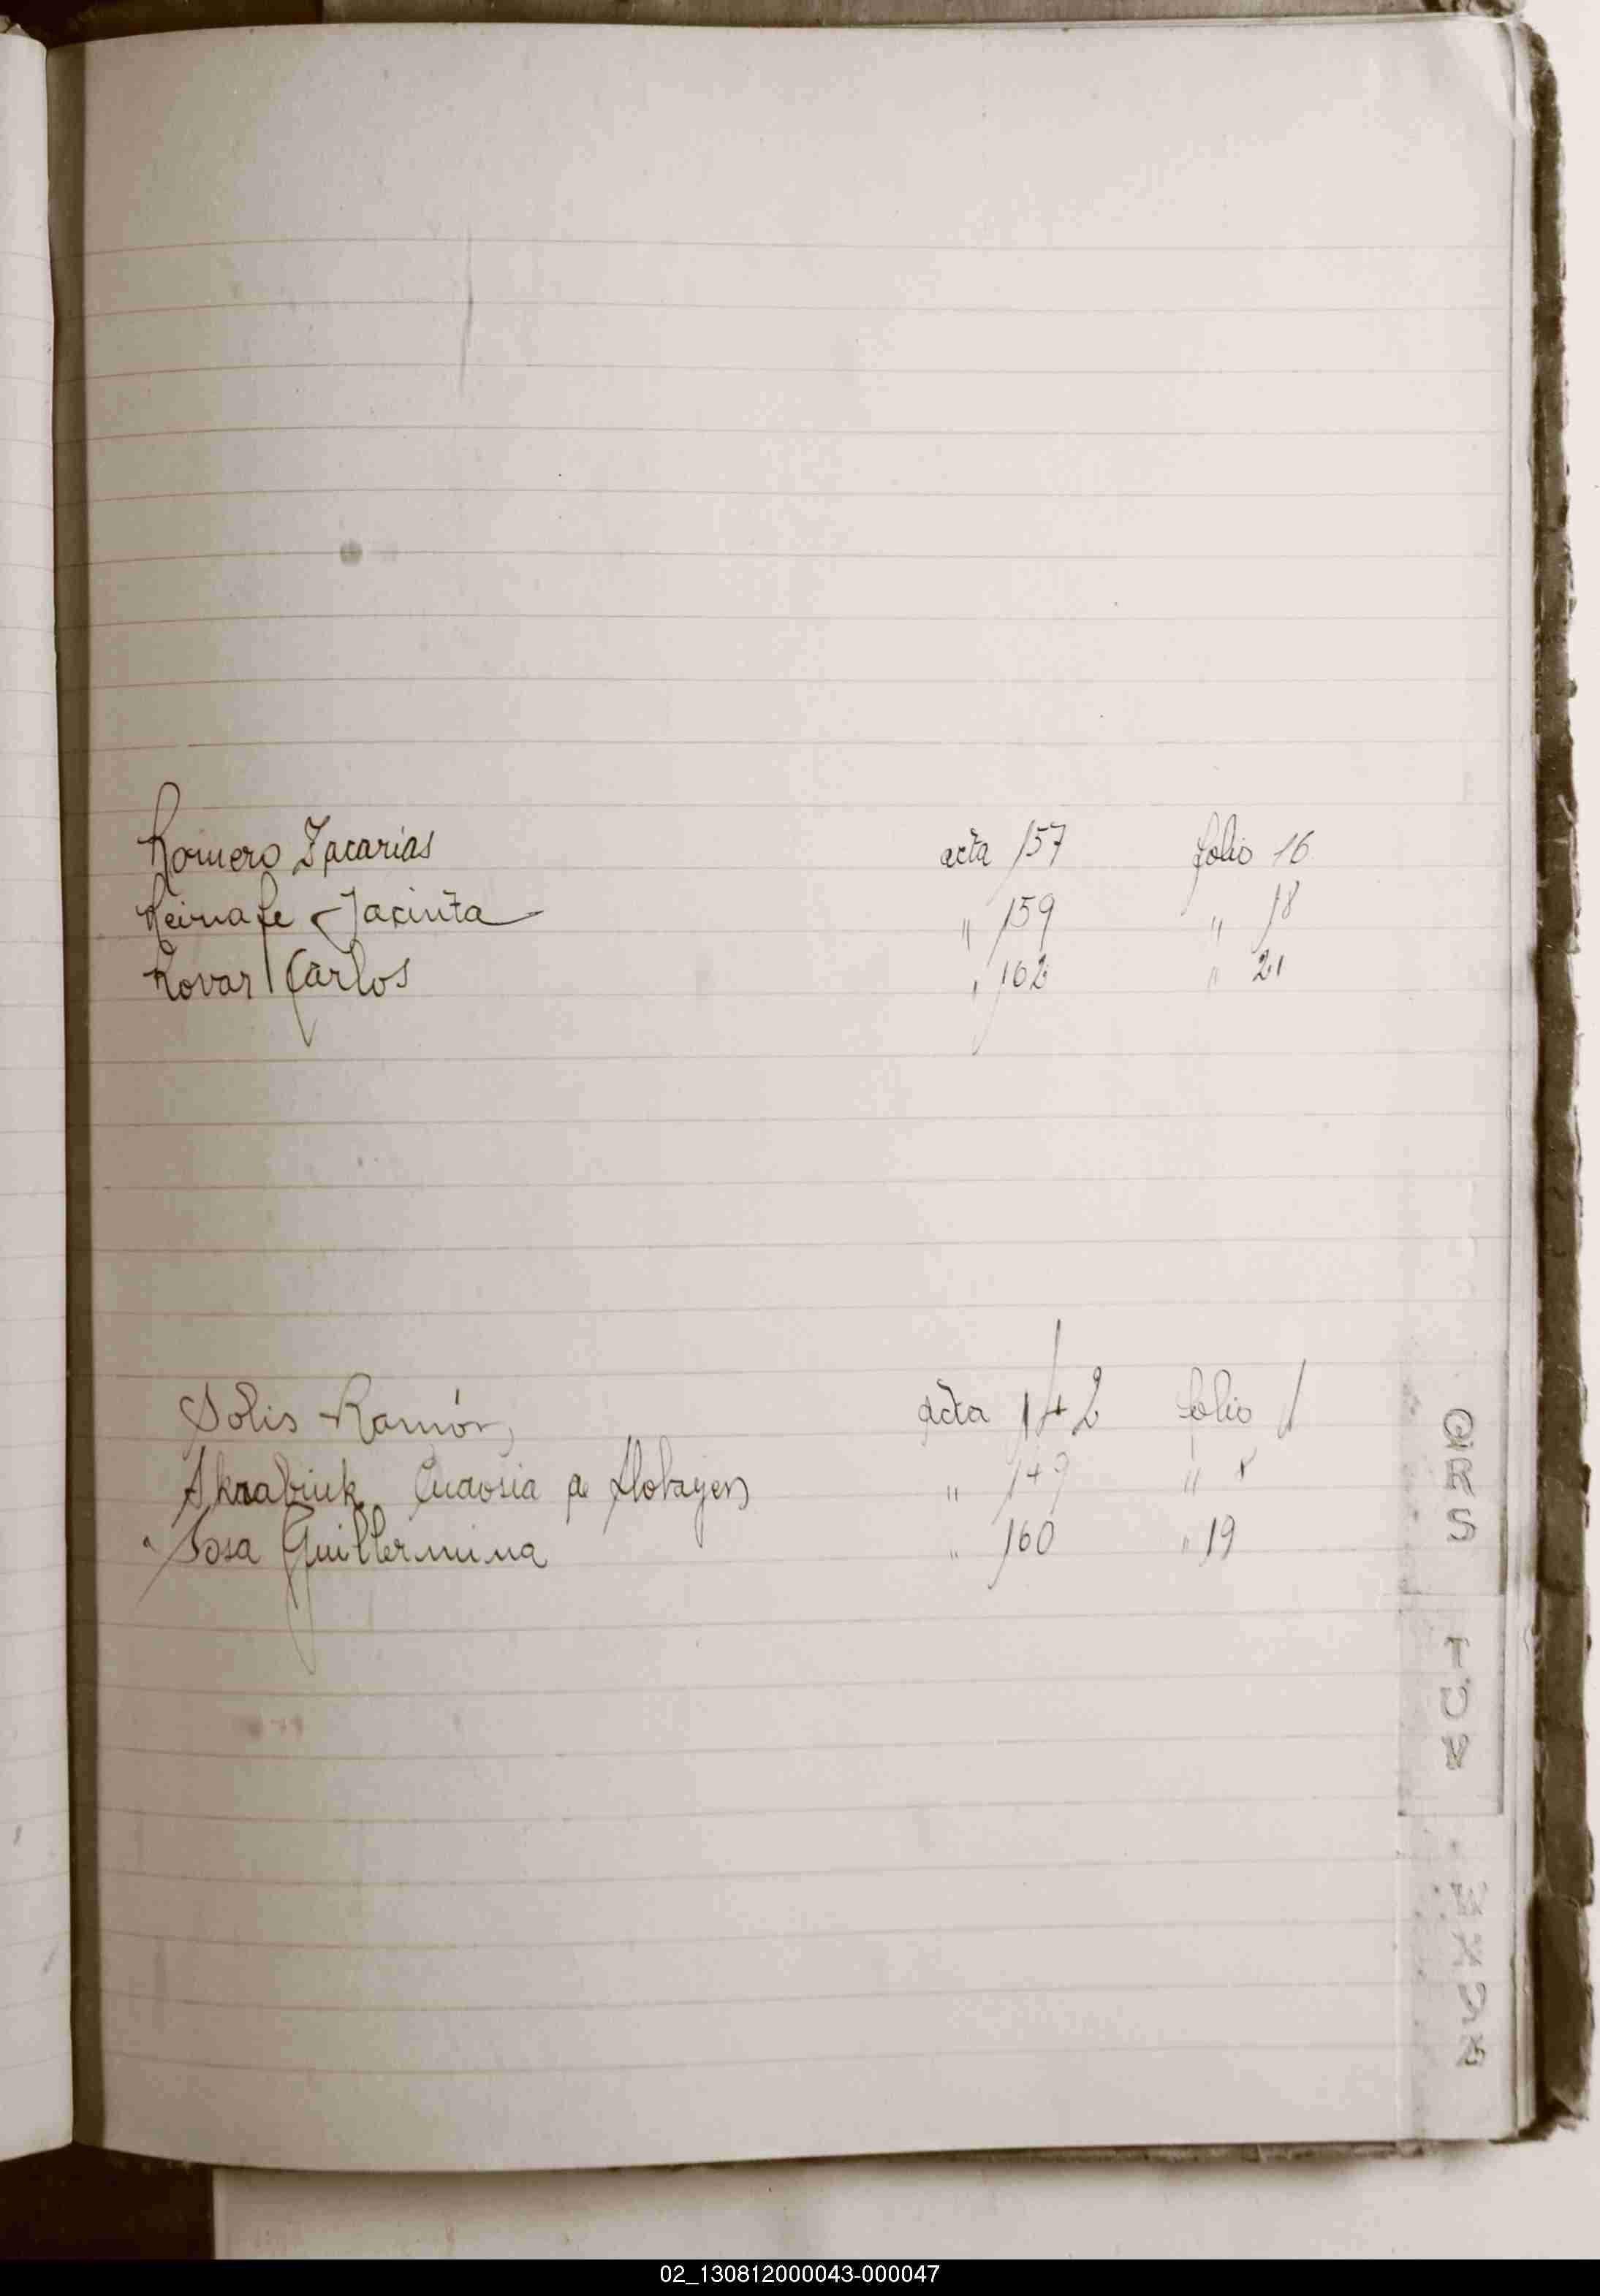 Romero Zacarías acta 157 folio 16
Reinafe Jacinta " 159 " 18
Kovar Carlos " 162 " 21
Solis Ramón acta 142 folio 1
Skrabiuk de " 149 " 8
Sosa Guillermina " 160 " 19
Q R S
T U V
W X Y Z
02_130812000043-000047